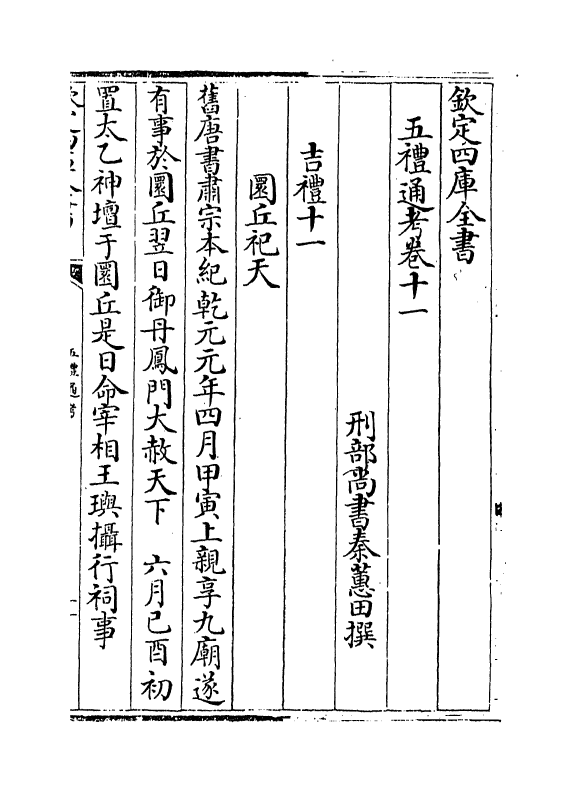 欽定四庫全書
五禮通考卷十一
刑部尚書秦蕙田撰
吉禮十一
圜丘祀天
舊唐書肅宗本紀乾元元年四月甲寅上親享九廟遂
有事於圜丘翌日御丹鳳門大赦天下　六月己酉初
置太乙神壇于圜丘是日命宰相王璵攝行祠事
五禮通考